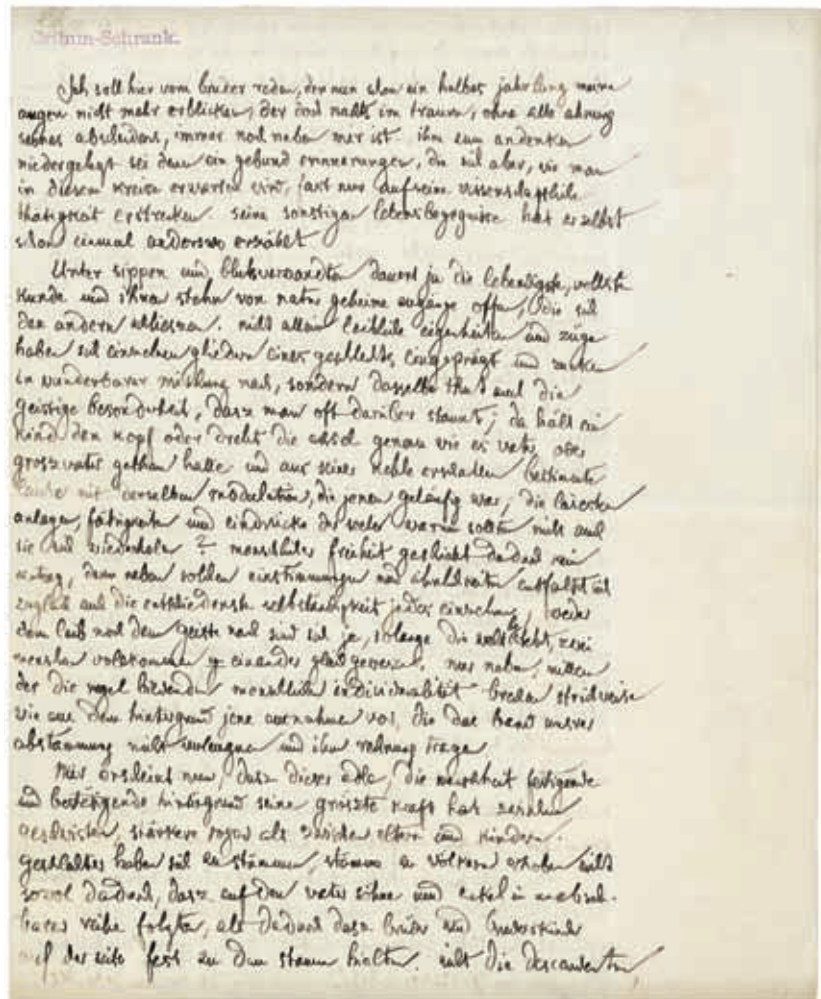 Grimm-Schrank.
Ich soll hier vom bruder reden, den nun schon ein halbes jahr lang meine
augen nicht mehr erblicken, der doch nachts im traum, ohne alle ahnung
seines abscheidens, immer noch neben mir ist. ihm zum andenken
niedergelegt sei denn ein gebund erinnerungen, die sich aber, wie man
in diesem kreise erwarten wird, fast nur auf seine wissenschaftliche
thätigkeit erstrecken. seine sonstigen lebensbegegnisse hat er selbst
schon einmal anderswo erzählt
Unter sippen und blutsverwandten dauert ja die lebendigste, vollste
kunde und ihnen stehn von natur geheime zugänge offen, die sich
den andern schlieszen. nicht allein leibliche eigenheiten und züge
haben sich einzelnen gliedern eines geschlechts eingeprägt und zucken
in wunderbarer mischung nach, sondern dasselbe thut auch die
geistige besonderheit, dasz man oft darüber staunt; da hält ein
kind den kopf oder dreht die achsel genau wie es vater oder
groszvater gethan hatte und aus seiner kehle erschallen bestimmte
laute mit derselben modulation, die jenen geläufig war; die leisesten
anlagen, fähigkeiten und eindrücke der seele warum sollten nicht auch
sie sich wiederholen? menschlicher freiheit geschieht dadurch kein
eintrag, denn neben solchen einstimmungen und ähnlichkeiten entfaltet sich
zugleich auch die entschiedenste selbständigkeit jedes einzelnen, weder
dem leib noch dem geiste nach sind sich je, solange die welt steht, zwei
menschen vollkommen einander gleich gewesen. nur neben, mitten
der die regel bildenden menschlichen individualität brechen strichweise
wie aus dem hintergrund jene ausnahmen vor, die das band unsrer
abstammung nicht verleugnen und ihm rechnung tragen
Mir erscheint nun, dasz dieser edle, die menschheit festigende
und bestätigende hintergrund seine gröszte kraft hat zwischen
geschwistern, stärkere sogar als zwischen eltern und kindern.
geschlechter haben sich zu stämmen, stämme zu völkern erhoben nicht
sowol dadurch, dasz auf den vater söhne und enkel in unabseh-
barer reihe folgten, als dadurch dasz brüder und bruderskinder
auf der seite fest zu dem stamm hielten. nicht die descendenten,